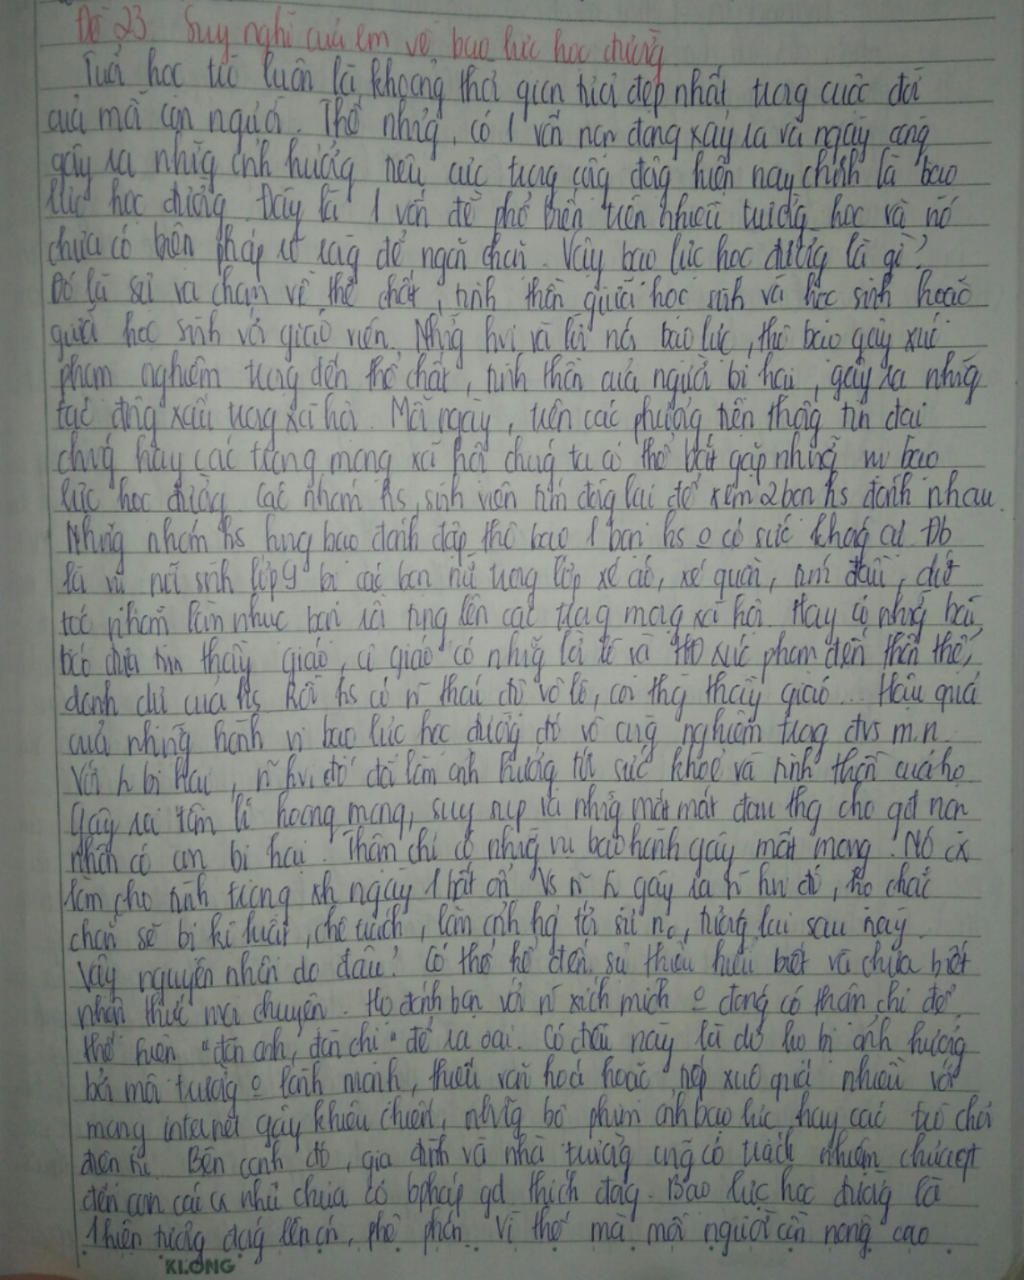 Đề 23. Suy nghĩ của em về bạo lực học đường
Tuổi học trò luôn là khoảng thời gian tươi đẹp nhất trong cuộc đời
của mỗi con người. Thế nhưng, có 1 vấn nạn đang xảy ra và ngày càng
gây ra những ảnh hưởng tiêu cực trong cộng đồng hiện nay chính là bạo
lực học đường. Đây là 1 vấn đề phổ biến trên nhiều trường học và nó
chưa có biện pháp rõ ràng để ngăn chặn. Vậy bạo lực học đường là gì?
Đó là sự va chạm về thể chất, tinh thần giữa học sinh và học sinh hoặc
giữa học sinh với giáo viên. Những hvi và lời nói bạo lực, thô bạo gây xúc
phạm nghiêm trọng đến thể chất, tinh thần của người bị hại, gây ra những
tác động xấu trong xã hội. Mỗi ngày, trên các phương tiện thông tin đại
chúng hay các trang mạng xã hội chúng ta có thể bắt gặp những vụ bạo
lực học đường. Các nhóm hs, sinh viên túm đông lại để xem 2 bạn hs đánh nhau.
Những nhóm hs hung bạo đánh đập thô bạo 1 bạn hs o có sức kháng cự. Đb
là vụ nữ sinh lớp 9 bị các bạn nữ trong lớp xé áo, xé quần, túm đầu, dứt
tóc nhằm làm nhục bạn rồi tung lên các trang mạng xã hội. Hay có những bài
báo đưa tin thầy giáo, cô giáo có những lời lẽ và HĐ xúc phạm đến thân thể,
danh dự của hs. Rồi hs có n~ thái độ vô lễ, coi thg thầy giáo... Hậu quả
của những hành vi bạo lực học đường đó vô cùng nghiêm trọng đvs m.n.
Với h bị hại, n~ hvi đó đã làm ảnh hưởng tới sức khoẻ và tinh thần của họ.
Gây ra tâm lí hoang mang, suy sụp và những mất mát đau thg cho gđ nạn
nhân có cn bị hại. Thậm chí có những vụ bạo hành gây mất mạng. Nó cx
làm cho tình trạng xh ngày 1 bất ổn. Vs n~ h gây ra n~ hvi đó, họ chắc
chắn sẽ bị kỉ luật, chê trách, làm ảnh hg tới sự no, tương lai sau này.
Vậy nguyên nhân do đâu? Có thể kể đến sự thiếu hiểu biết và chưa biết
nhận thức mọi chuyện. Họ đánh bạn với n~ xích mích o đáng có thậm chí để
thể hiện "đàn anh, đàn chị" để ra oai. Có điều này là do họ bị ảnh hưởng
bởi môi trường o lành mạnh, thiếu văn hoá hoặc tiếp xúc quá nhiều với
mạng internet gây khiêu chiến, những bộ phim ảnh bạo lực hay các trò chơi
điện tử. Bên cạnh đó, gia đình và nhà trường cũng có trách nhiệm
đến con cái cx như chưa có bpháp gd thích đáng. Bạo lực học đường là
1 hiện tượng đáng lên án, phê phán. Vì thế mà mỗi người cần nâng cao
KLONG